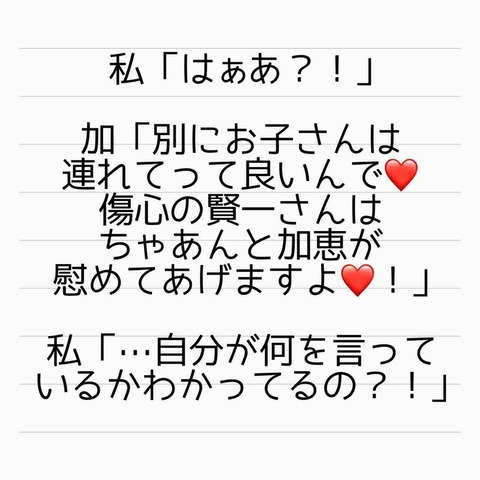 私「はぁあ？！」
加「別にお子さんは
連れてって良いんで❤️
傷心の賢一さんは
ちゃあんと加恵が
慰めてあげますよ❤️！」
私「…自分が何を言って
いるかわかってるの？！」